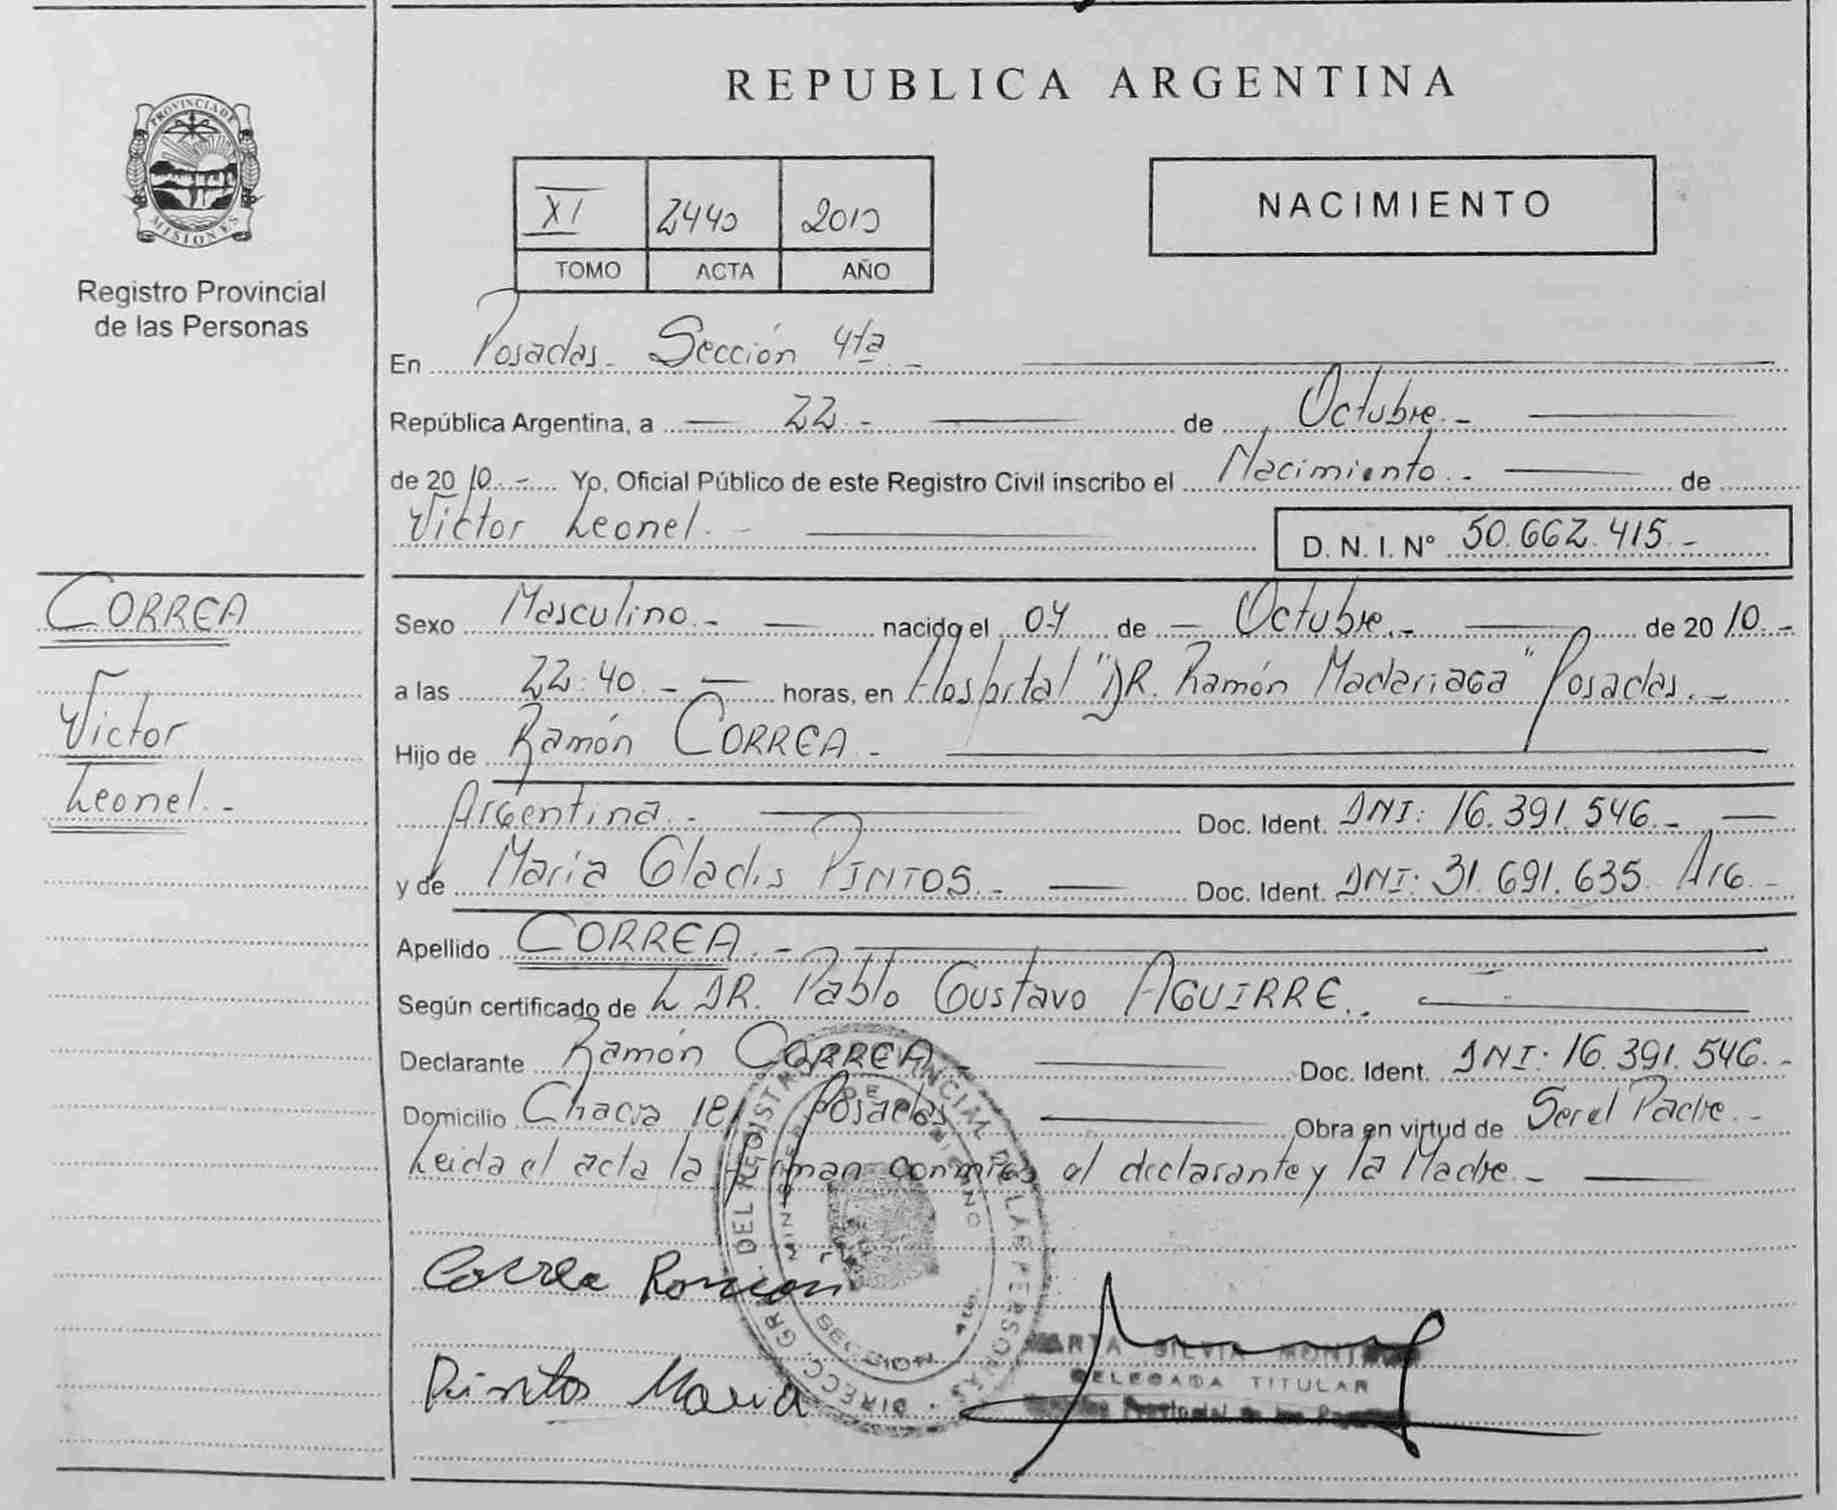 REPUBLICA ARGENTINA
PROVINCIA DE
MISIONES
Registro Provincial
de las Personas
XI 2440 2010
TOMO ACTA AÑO
NACIMIENTO
En Posadas - Sección 4ta -
República Argentina, a — 22 - de Octubre.-
de 2010.- Yo, Oficial Público de este Registro Civil inscribo el Nacimiento.- de
Victor Leonel.-
D. N. I. Nº 50.662.415.-
CORREA
Victor
Leonel.-
Sexo Masculino.- nacido el 04 de — Octubre.- de 2010.-
a las 22:40.- horas, en Hospital "DR. Ramón Madariaga" Posadas.-
Hijo de Ramón CORREA -
Argentina.- Doc. Ident. DNI: 16.391.546.-
y de María Gladis PINTOS.- Doc. Ident. DNI: 31.691.635. Arg.-
Apellido CORREA.-
Según certificado de DR. Pablo Gustavo AGUIRRE.
Declarante Ramón CORREA Doc. Ident. DNI: 16.391.546.-
Domicilio Chacra Posadas Obra en virtud de Ser el Padre.-
Leida el acta la firman conmigo el declarante y la Madre.-
Correa Ramon
Pintos Maria
DIRECC. GRAL. DEL REGISTRO PROVINCIAL DE LAS PERSONAS
SECCION
MARTA SILVIA
DELEGADA TITULAR
Provincial de las